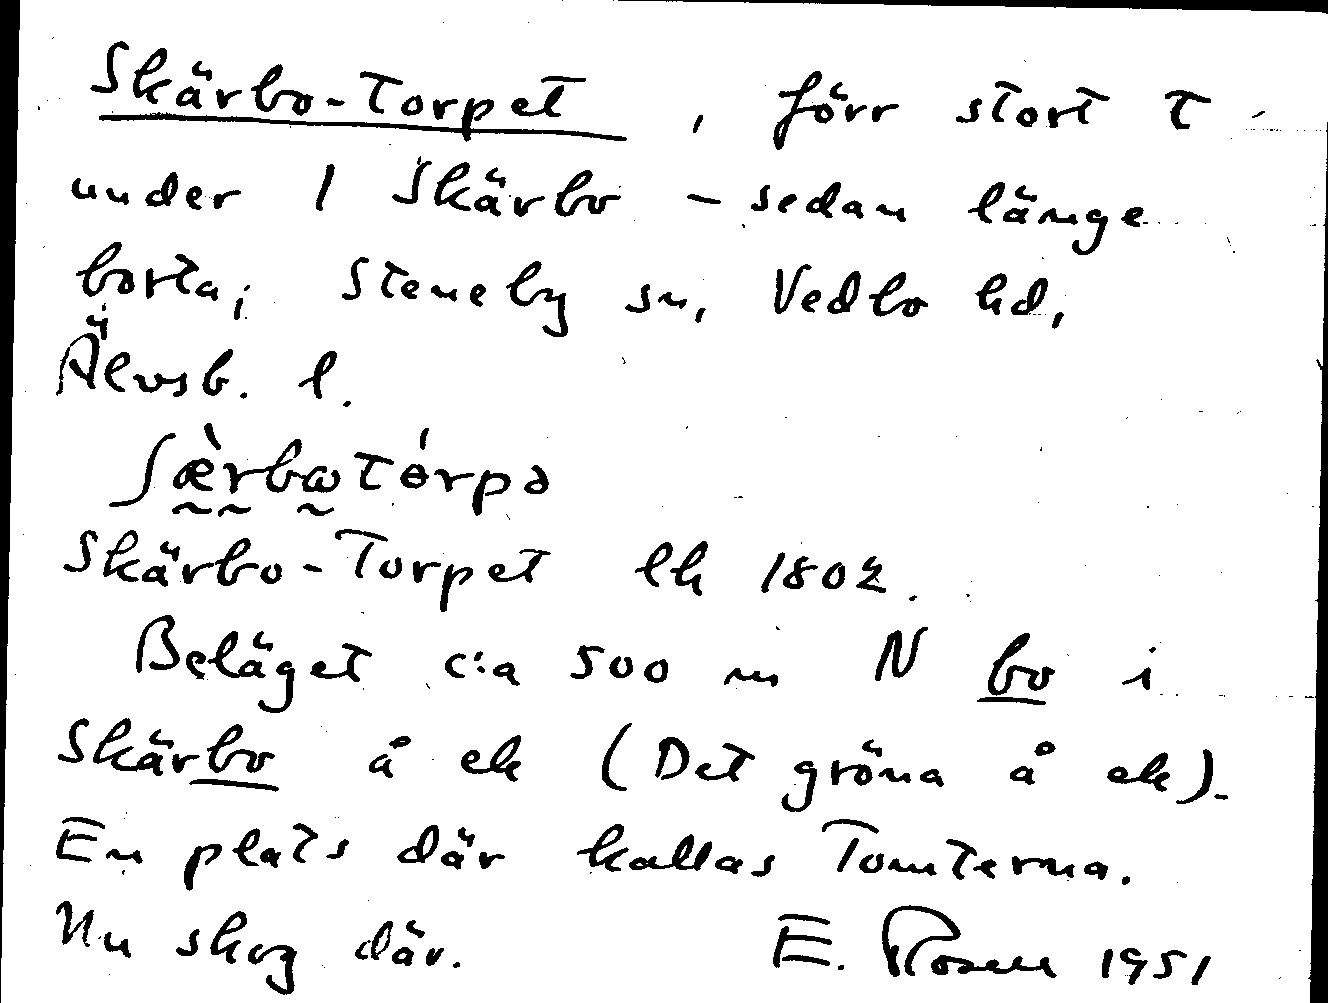 Skärbo-Torpet, förr stort t
under 1 Skärbo – sedan länge
borta, Steneby sn, Vedbo hd,
Älvsb. l.
ʃæ̀rbɷtɵ́rpə
Skärbo-Torpet lk 1802.
Beläget c:a 500 m N bo i
Skärbo å ek (Det gröna å ek).
En plats där kallas Tomterna.
Nu skog där. E. Rosen 1951